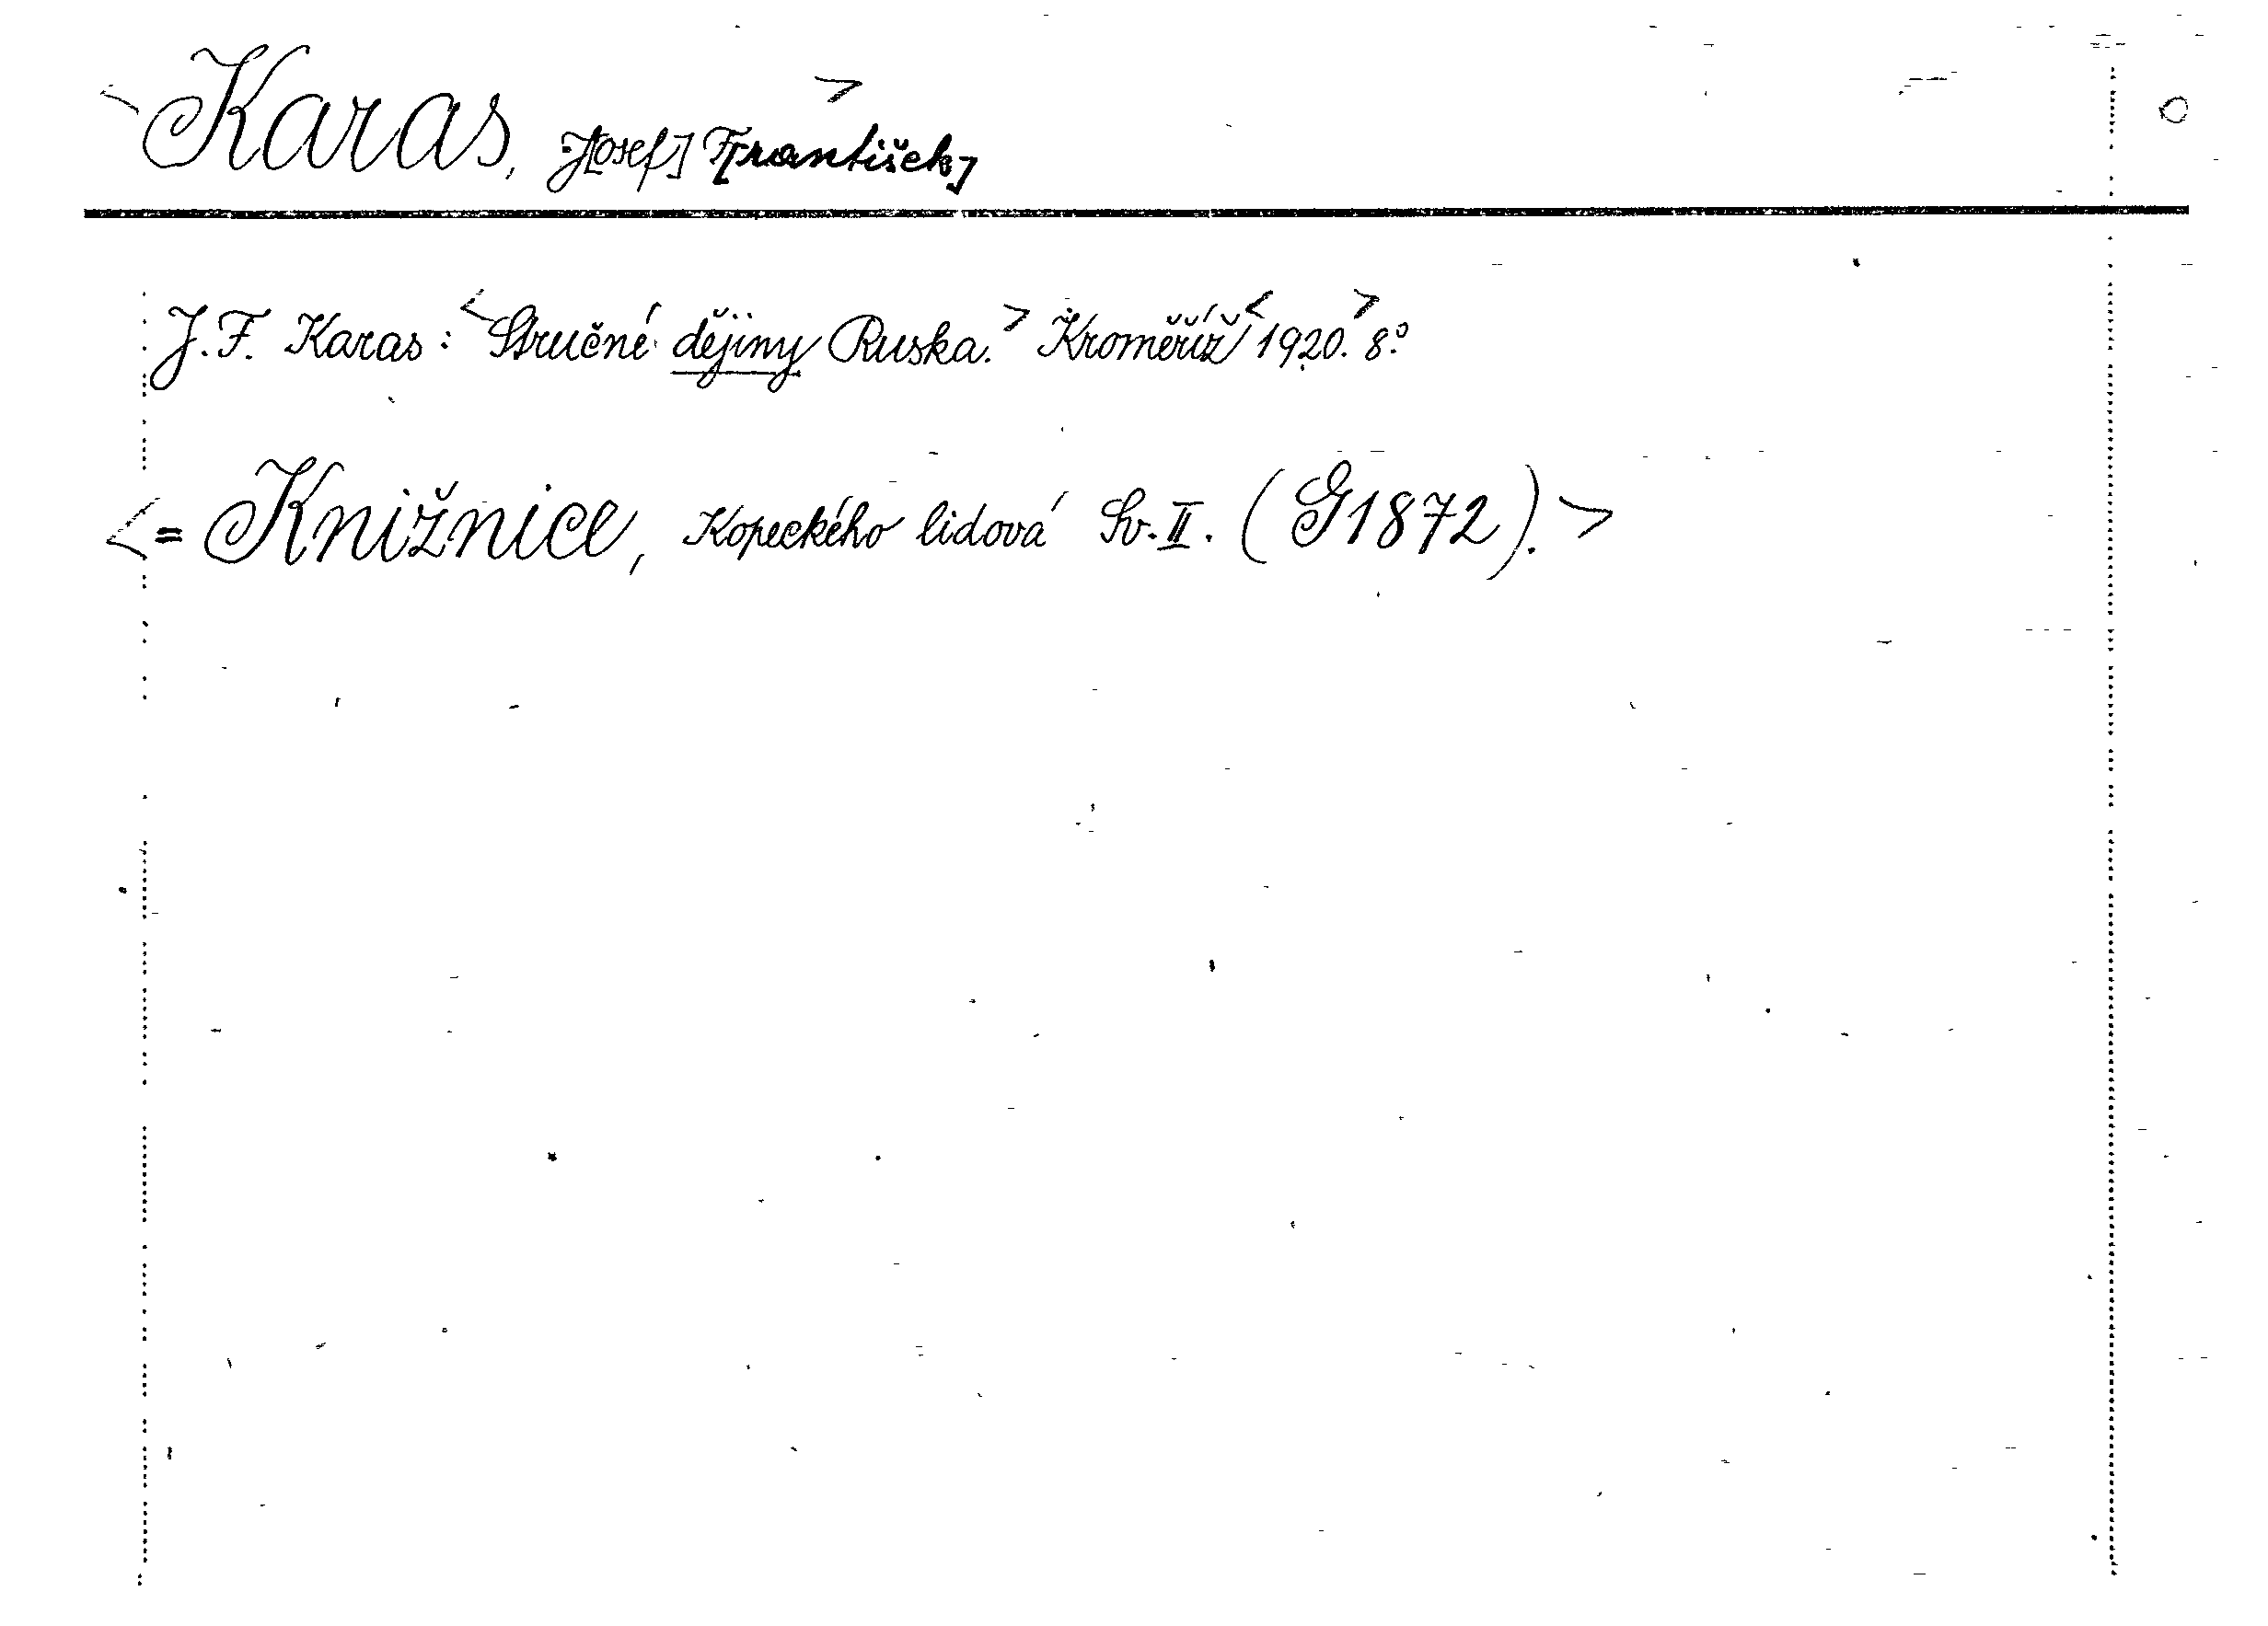 <Karas, J[osef] F[rantišek]>
J. F. Karas: <Stručné dějiny Ruska.> Kroměříž <1920.> 8.°
<= Knižnice, Kopeckého lidová Sv. II. (G1872).>